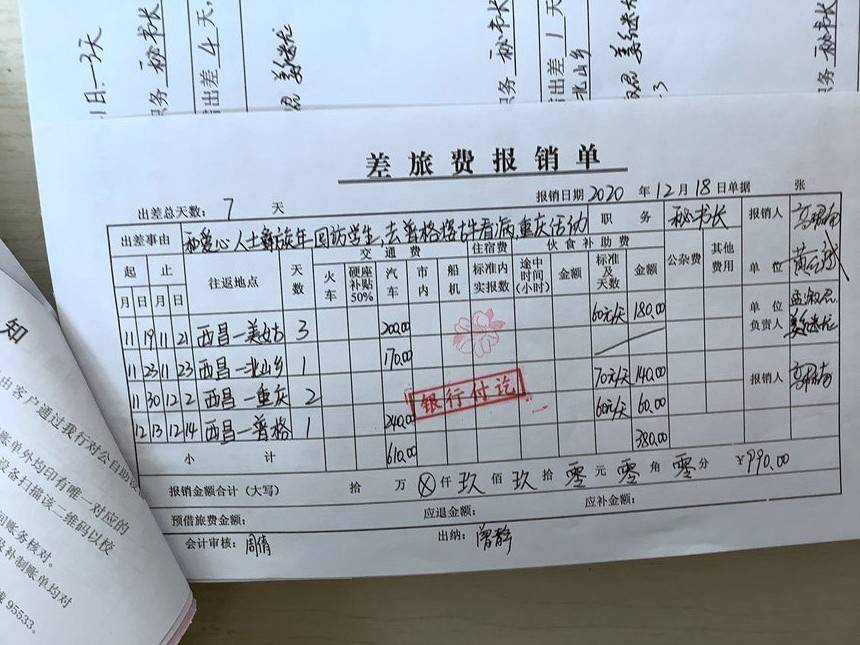 1日.一3天
职务 秘书长
出差 4 天,
姜继龙
职务 秘书长
出差 1 天
北山乡
姜继龙
职务 秘书长
差旅费报销单
出差总天数: 7 天
报销日期 2020 年 12 月 18 日 单据 张
出差事由 和爱心人士彝族年回访学生,去普格 看病,重庆 职务 秘书长 报销人
起 止 往返地点 天数 交通费 住宿费 伙食补助费 公杂费 其他费用 单位
月 日 月 日 火车 硬座补贴50% 汽车 市内 船机 标准内实报数 途中时间(小时) 金额 标准及天数 金额
11 19 11 21 西昌—美姑 3 200.00 60元/天 180.00 单位负责人 姜继龙
11 23 11 23 西昌—北山乡 1 170.00
11 30 12 2 西昌—重庆 2 70元/天 140.00 报销人
12 13 12 14 西昌—普格 1 240.00 60元/天 60.00
银行付讫
小计 610.00 380.00
报销金额合计(大写) 拾 万 ⊗ 仟 玖 佰 玖 拾 零 元 零 角 零 分 ¥990.00
预借旅费金额: 应退金额: 应补金额:
会计审核: 周倩 出纳: 曾静
知
由客户通过我行对公自助设
账单外均印有唯一对应的
设备扫描该二维码以校
账务核对。
补制账单均对
95533。